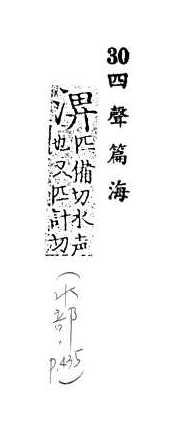 30 四聲篇海
淠
匹備切水声
也又匹計切
(水部. p.435)